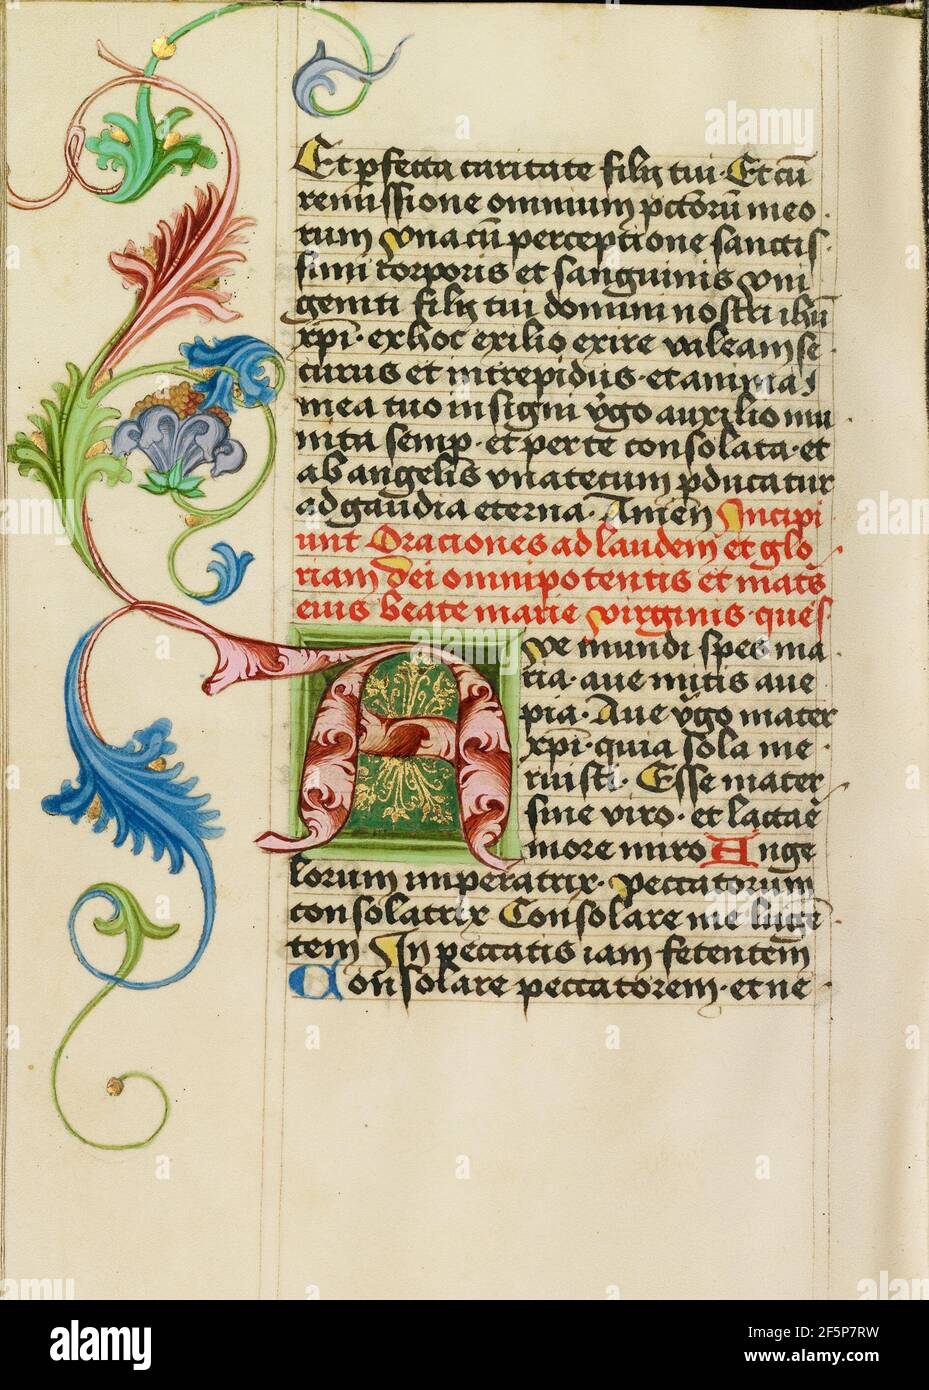 Et pfecta caritate filij tui · Et cū
remissione omnium pctorū meo
rum vna cū perceptione sanctis
simi corporis et sanguinis vni
geniti filij tui domini nostri ihū
xpi · ex hoc exilio exire valeam se
curus et intrepidus · et anima
mea tuo insigni vgo auxilio mu
nita semp · et per te consolata · et
ab angelis vna tecum pducatur
ad gaudia eterna · Amen Incipi
unt Oraciones ad laudem et glo
riam dei omnipotentis et mats
eius beate marie virginis · ques
Ave mundi spes ma
ria · aue mitis aue
pia · Aue vgo mater
xpi · quia sola me
ruisti · Esse mater
sine viro · et lactaē
more miro Ange
lorum imperatrix · peccatorum
consolatrix Consolare me lugē
tem In peccatis iam fetentem
Consolare peccatorem · et ne
alamy
a
alamy
Image ID: 2F5P7RW
www.alamy.com